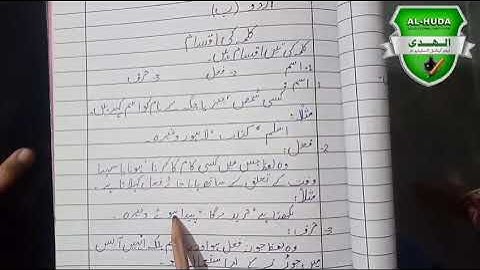 AL-HUDA
الهدی
اردو (ب)
کلمہ کی اقسام
کلمہ کی تین اقسام ہیں۔
1۔ اسم 2۔ فعل 3۔ حرف
1۔ اسم:
کسی شخص، چیز یا جگہ کے نام کو اسم کہتے ہیں۔
مثلاً:
اسلم، کتاب، لاہور وغیرہ۔
2۔ فعل:
وہ لفظ جس میں کسی کام کا کرنا، ہونا یا سہنا
وقت کے تعلق کے ساتھ پایا جائے فعل کہلاتا ہے۔
مثلاً:
لکھتا ہے، خریدے گا، پیدا ہوئے وغیرہ۔
3۔ حرف:
وہ لفظ جو نہ فعل ہو اور نہ اسم بلکہ انہیں آپس
میں جوڑنے کے لیے